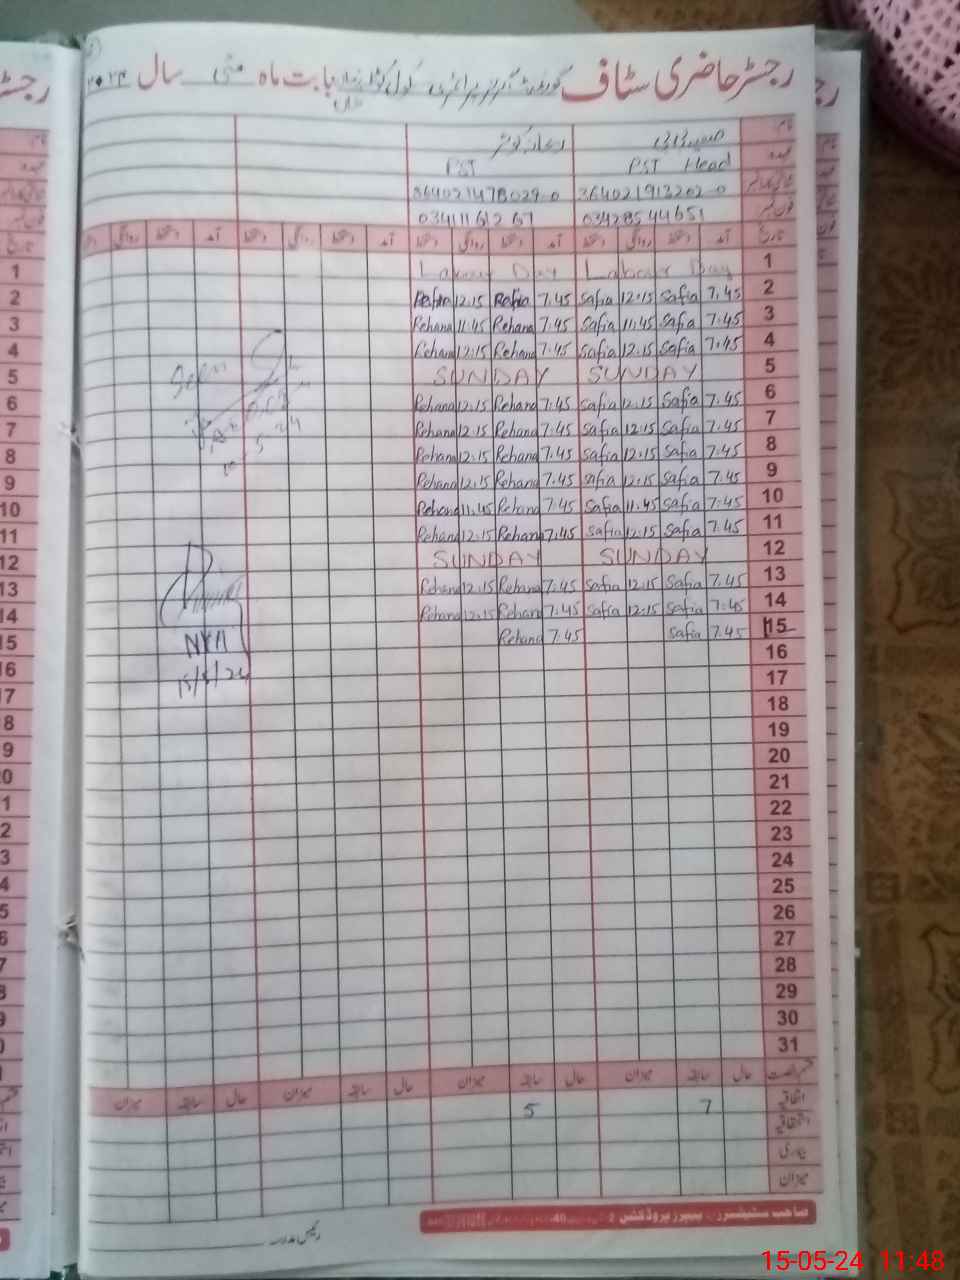 رجسٹر حاضری سٹاف گورنمنٹ گرلز پرائمری سکول بابت ماہ مئی سال ۲۰۲۴
نام
عہدہ PST Head PST
364021913202-0 364021478029-0
فون نمبر 03428544651 03411161267
تاریخ آمد دستخط روانگی دستخط آمد دستخط روانگی دستخط آمد دستخط روانگی دستخط آمد دستخط روانگی
1 Labour Day Labour Day
2 7.45 Safia 12.15 Safia 7.45 12.15
3 7.45 Safia 11.45 Safia 7.45 Rehana 11.45 Rehana
4 7.45 Safia 12.15 Safia 7.45 Rehana 12.15 Rehana
5 SUNDAY SUNDAY
6 7.45 Safia 12.15 Safia 7.45 Rehana 12.15 Rehana
7 7.45 Safia 12.15 Safia 7.45 Rehana 12.15 Rehana
8 7.45 Safia 12.15 Safia 7.45 Rehana 12.15 Rehana
9 7.45 Safia 12.15 Safia 7.45 Rehana 12.15 Rehana
10 7.45 Safia 11.45 Safia 7.45 Rehana 11.45 Rehana
11 7.45 Safia 12.15 Safia 7.45 Rehana 12.15 Rehana
12 SUNDAY SUNDAY
13 7.45 Safia 12.15 Safia 7.45 Rehana 12.15 Rehana
14 7.45 Safia 12.15 Safia 7.45 Rehana 12.15 Rehana
15 7.45 Safia 7.45 Rehana
15/5/24
16
17
18
19
20
21
22
23
24
25
26
27
28
29
30
31
قسم رخصت حال سابقہ میزان حال سابقہ میزان حال سابقہ میزان حال سابقہ میزان
اتفاقیہ 7 5
استحقاقیہ
بیماری
میزان
رئیس مدرسہ
15-05-24 11:48